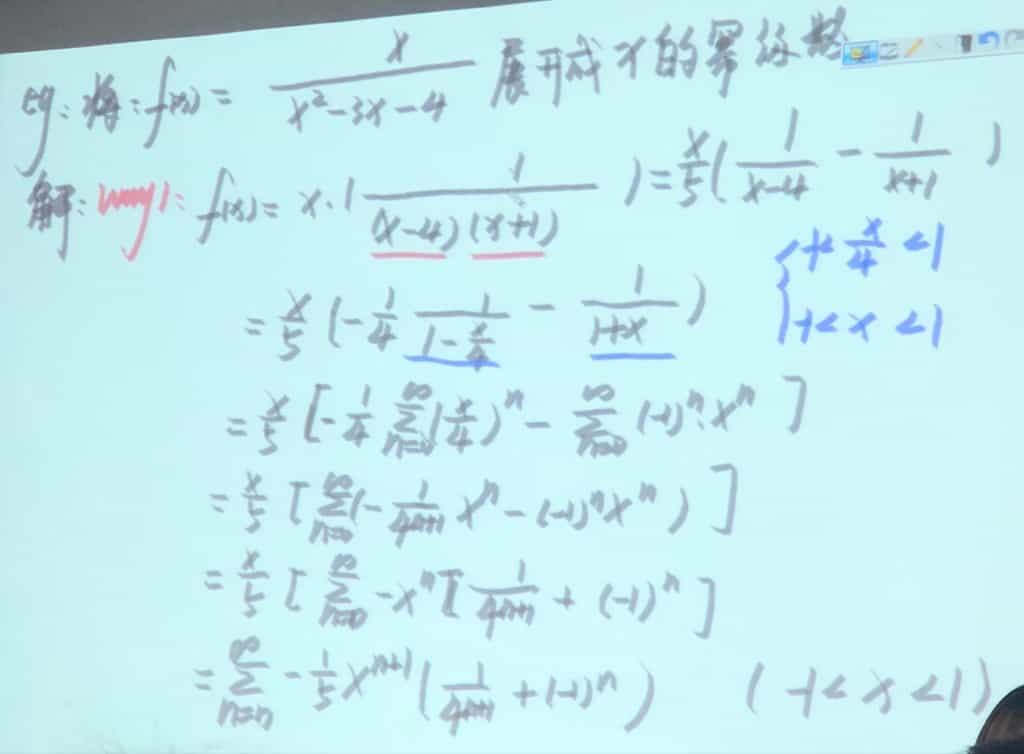 例:将:f(x) = x/(x²-3x-4) 展开成 x 的幂级数
解: way1: f(x) = x·( 1/((x-4)(x+1)) ) = x/5 ( 1/(x-4) - 1/(x+1) )
= x/5 ( -1/4 1/(1-x/4) - 1/(1+x) ) { -1< x/4 <1
-1< x <1
= x/5 [ -1/4 ∑_{n=0}^{∞} (x/4)^n - ∑_{n=0}^{∞} (-1)^n·x^n ]
= x/5 [ ∑_{n=0}^{∞} ( -1/4^{n+1} x^n - (-1)^n x^n ) ]
= x/5 [ ∑_{n=0}^{∞} -x^n [ 1/4^{n+1} + (-1)^n ]
= ∑_{n=n}^{∞} -1/5 x^{n+1} ( 1/4^{n+1} + (-1)^n ) ( -1< x <1 )